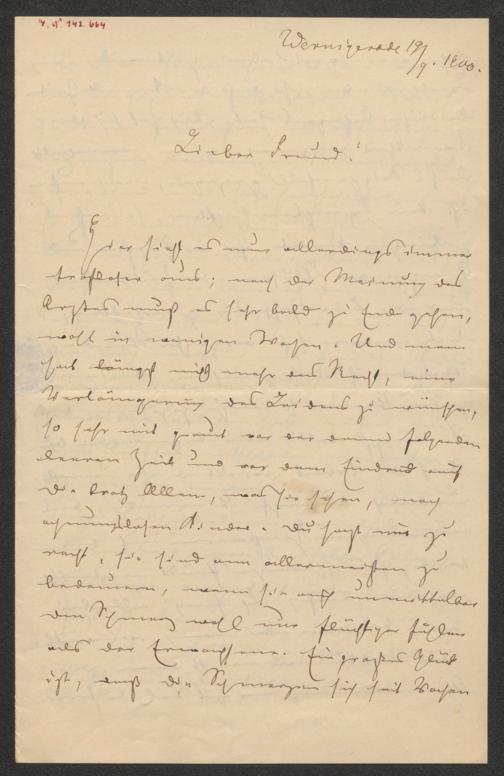 I. N. 142.664
Wernigerode 19/
9. 1900.
Lieber Freund!
Hier sieht es nun allerdings immer
trostloser aus; nach der Meinung des
Arztes muß es sehr bald zu Ende gehen,
wohl in wenigen Wochen. Und man
hat längst nicht mehr das Recht, eine
Verlängerung des Leidens zu wünschen,
so sehr mir graut vor der dann folgenden
leeren Zeit und vor dem Eindruck auf
die trotz Allem, was sie sehen, noch
ahnungslosen Kinder. Du sagst mir zu
recht, sie sind am allermeisten zu
bedauern, wenn sie auch unmittelbar
den Schmerz wohl nur flüchtiger fühlen
als der Erwachsene. Ein großes Glück
ist, daß die Schmerzen sich seit Wochen